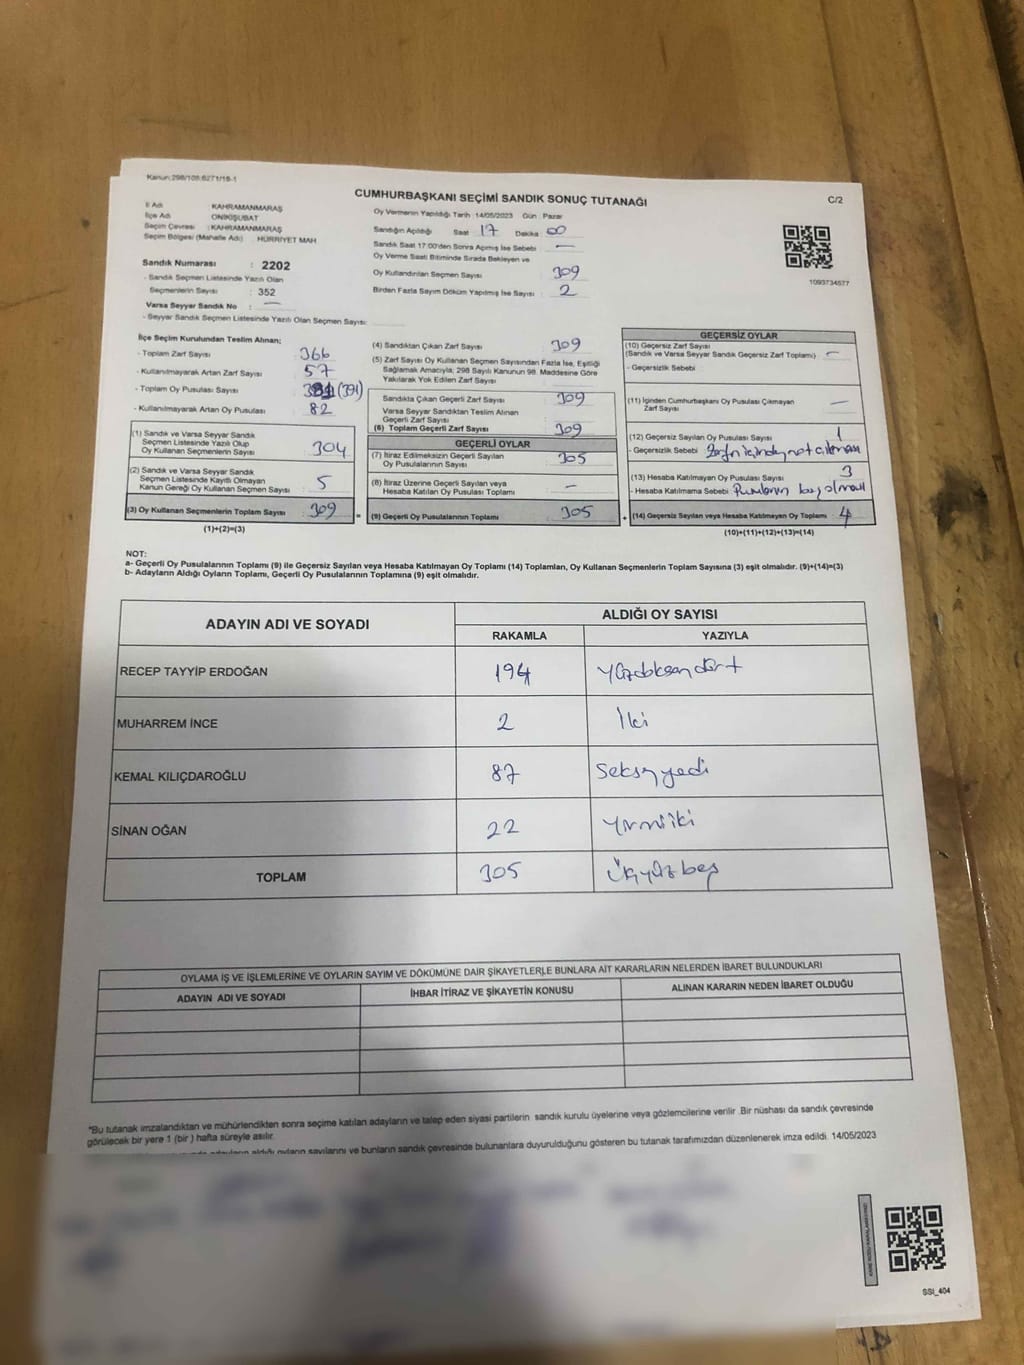 Kanun:298/105:6271/16-1
CUMHURBAŞKANI SEÇİMİ SANDIK SONUÇ TUTANAĞI
C/2
İl Adı : KAHRAMANMARAŞ
İlçe Adı : ONİKİŞUBAT
Seçim Çevresi : KAHRAMANMARAŞ
Seçim Bölgesi (Mahalle Adı) : HÜRRİYET MAH
Sandık Numarası : 2202
- Sandık Seçmen Listesinde Yazılı Olan
Seçmenlerin Sayısı : 352
Varsa Seyyar Sandık No : —
- Seyyar Sandık Seçmen Listesinde Yazılı Olan Seçmen Sayısı:
Oy Vermenin Yapıldığı Tarih : 14/05/2023 Gün : Pazar
Sandığın Açıldığı Saat 17 Dakika 00
Sandık Saat 17:00'den Sonra Açılmış İse Sebebi : —
Oy Verme Saati Bitiminde Sırada Bekleyen ve
Oy Kullandırılan Seçmen Sayısı : 309
Birden Fazla Sayım Döküm Yapılmış İse Sayısı : 2
1093734577
İlçe Seçim Kurulundan Teslim Alınan;
- Toplam Zarf Sayısı : 366
- Kullanılmayarak Artan Zarf Sayısı : 57
- Toplam Oy Pusulası Sayısı : (391)
- Kullanılmayarak Artan Oy Pusulası : 82
(1) Sandık ve Varsa Seyyar Sandık
Seçmen Listesinde Yazılı Olup
Oy Kullanan Seçmenlerin Sayısı : 304
(2) Sandık ve Varsa Seyyar Sandık
Seçmen Listesinde Kayıtlı Olmayan
Kanun Gereği Oy Kullanan Seçmen Sayısı : 5
(3) Oy Kullanan Seçmenlerin Toplam Sayısı : 309
(1)+(2)=(3)
(4) Sandıktan Çıkan Zarf Sayısı : 309
(5) Zarf Sayısı Oy Kullanan Seçmen Sayısından Fazla İse, Eşitliği
Sağlamak Amacıyla, 298 Sayılı Kanunun 98. Maddesine Göre
Yakılarak Yok Edilen Zarf Sayısı :
Sandıkta Çıkan Geçerli Zarf Sayısı : 309
Varsa Seyyar Sandıktan Teslim Alınan
Geçerli Zarf Sayısı :
(6) Toplam Geçerli Zarf Sayısı : 309
GEÇERLİ OYLAR
(7) İtiraz Edilmeksizin Geçerli Sayılan
Oy Pusulalarının Sayısı : 305
(8) İtiraz Üzerine Geçerli Sayılan veya
Hesaba Katılan Oy Pusulası Toplamı : —
= (9) Geçerli Oy Pusulalarının Toplamı : 305
GEÇERSİZ OYLAR
(10) Geçersiz Zarf Sayısı
(Sandık ve Varsa Seyyar Sandık Geçersiz Zarf Toplamı) : —
- Geçersizlik Sebebi :
(11) İçinden Cumhurbaşkanı Oy Pusulası Çıkmayan
Zarf Sayısı : —
(12) Geçersiz Sayılan Oy Pusulası Sayısı : 1
- Geçersizlik Sebebi :
(13) Hesaba Katılmayan Oy Pusulası Sayısı : 3
- Hesaba Katılmama Sebebi : Pusulanın boş olması
+ (14) Geçersiz Sayılan veya Hesaba Katılmayan Oy Toplamı : 4
(10)+(11)+(12)+(13)=(14)
NOT:
a- Geçerli Oy Pusulalarının Toplamı (9) ile Geçersiz Sayılan veya Hesaba Katılmayan Oy Toplamı (14) Toplamları, Oy Kullanan Seçmenlerin Toplam Sayısına (3) eşit olmalıdır. (9)+(14)=(3)
b- Adayların Aldığı Oyların Toplamı, Geçerli Oy Pusulalarının Toplamına (9) eşit olmalıdır.
ADAYIN ADI VE SOYADI
ALDIĞI OY SAYISI
RAKAMLA YAZIYLA
RECEP TAYYİP ERDOĞAN 194 Yüzdoksandört
MUHARREM İNCE 2 İki
KEMAL KILIÇDAROĞLU 87 Seksenyedi
SİNAN OĞAN 22 Yirmiiki
TOPLAM 305 Üçyüzbeş
OYLAMA İŞ VE İŞLEMLERİNE VE OYLARIN SAYIM VE DÖKÜMÜNE DAİR ŞİKAYETLERLE BUNLARA AİT KARARLARIN NELERDEN İBARET BULUNDUKLARI
ADAYIN ADI VE SOYADI İHBAR İTİRAZ VE ŞİKAYETİN KONUSU ALINAN KARARIN NEDEN İBARET OLDUĞU
*Bu tutanak imzalandıktan ve mühürlendikten sonra seçime katılan adayların ve talep eden siyasi partilerin sandık kurulu üyelerine veya gözlemcilerine verilir .Bir nüshası da sandık çevresinde
görülecek bir yere 1 (bir ) hafta süreyle asılır.
adayların aldığı oyların sayılarını ve bunların sandık çevresinde bulunanlara duyurulduğunu gösteren bu tutanak tarafımızdan düzenlenerek imza edildi. 14/05/2023
SSI_404